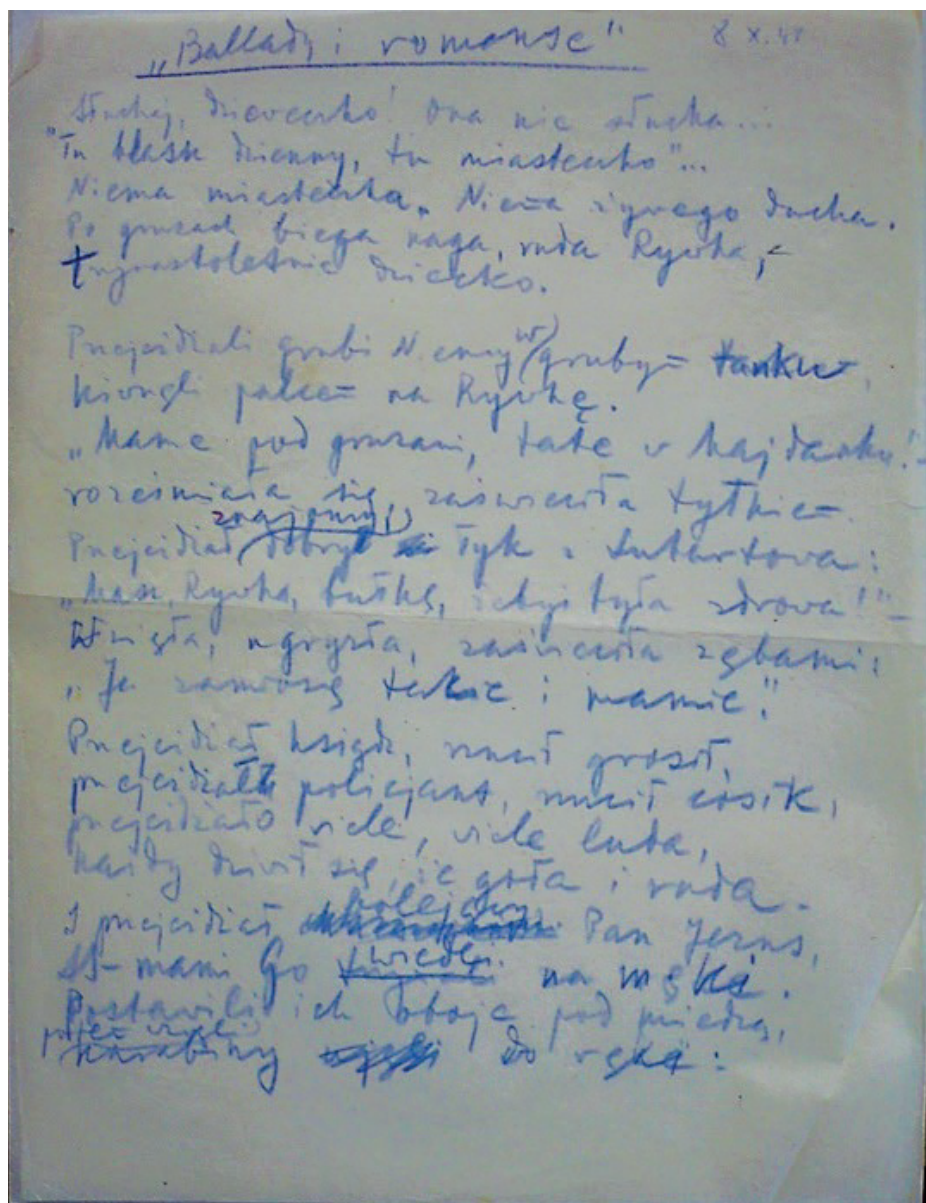 „Ballady i romanse" 8 X.41
Słuchaj, dzieweczko! Ona nie słucha...
"Tu blask dzienny, tu miasteczko"...
Niema miasteczka. Niema żywego ducha.
Po gruzach biega naga, ruda Ryvka, –
trzynastoletnie dziecko.
Przejeżdżali grubi Niemcy w grubym tanku
palcem na Ryvkę.
„Mame pod gruzami, tate v Majdanku!" –
roześmiała się, zaświeciła tyłkiem.
znajomy,
Przejeżdżał dobry łyk z Lubartowa:
„Masz, Ryvka, bułkę, żebyś była zdrowa!" –
Wzięła, ugryzła, zaświeciła zębami:
„Ja zaniosę tacie i mamie."
Przejeżdżał ksiądz, rzucił grosik,
przejeżdżał policjant, rzucił cosik,
przejeżdżało viele, viele luda,
każdy dziwił się, że goła i ruda.
kolejowy
I przejeżdżał Pan Jezus,
wiedli
SS-mani Go na mękę.
Postawili ich oboje pod miedzą,
potem vzięli
karabiny do rękę: